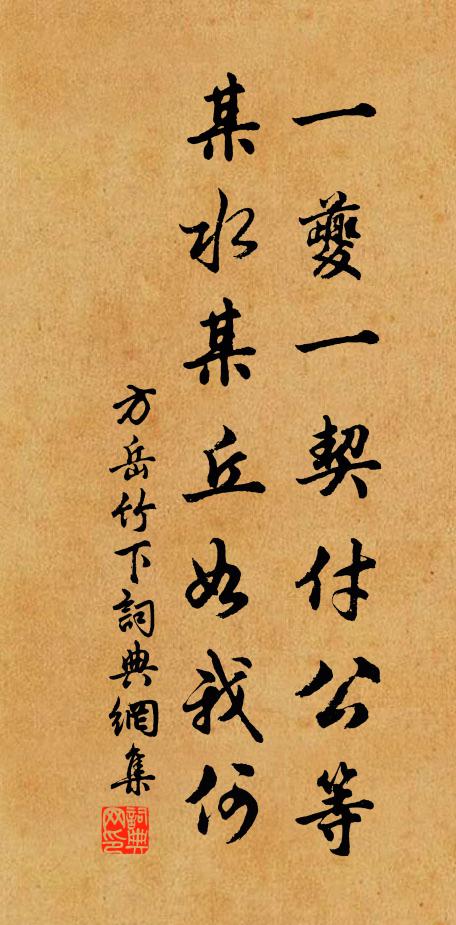 一夔一契付公等
某水某丘如我何
方岳竹下詞典網集
詞典网印